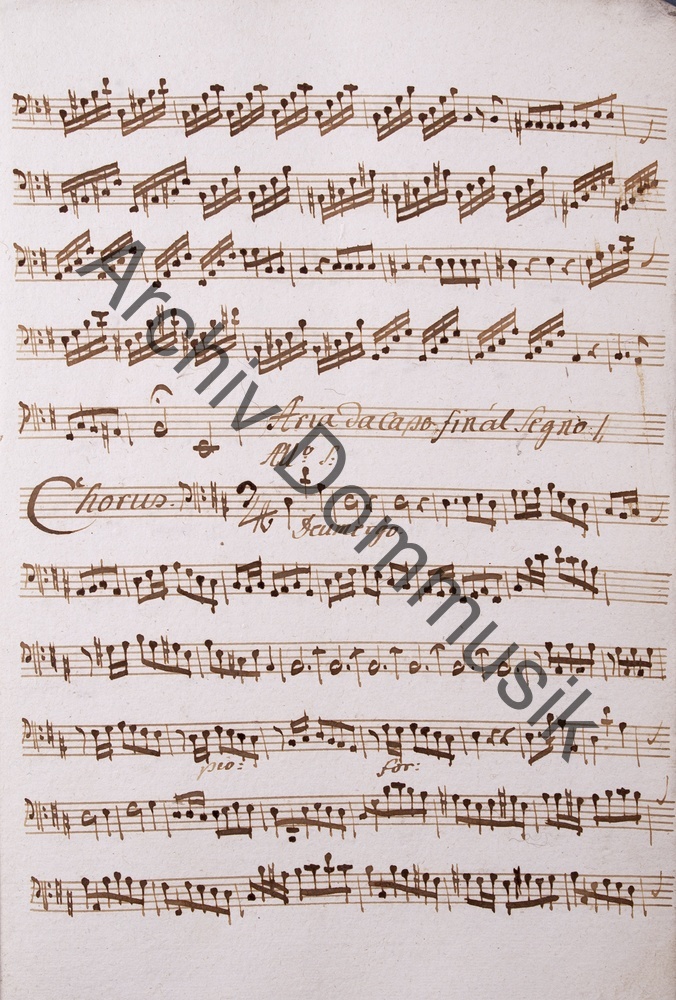 Aria da capo. finâl segno.
All.º
Chorus.
pio:
for:
Archiv Dommusik